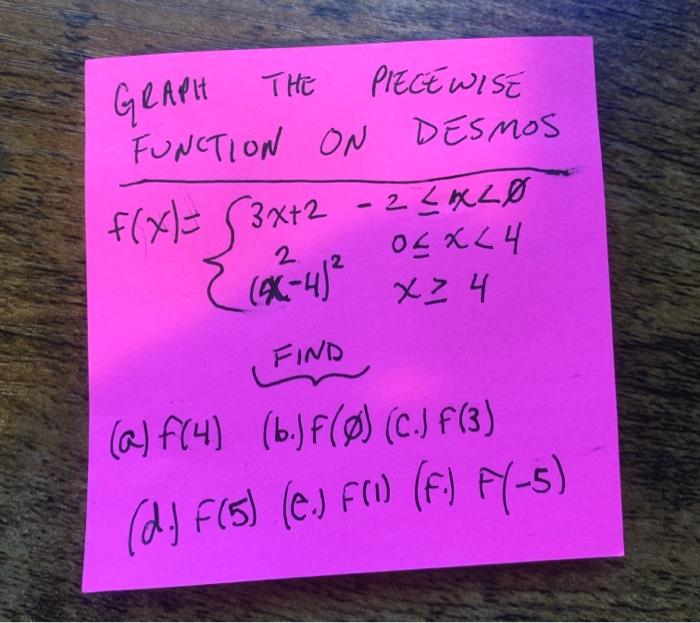 GRAPH THE PIECEWISE
FUNCTION ON DESMOS
f(x)= { 3x+2 -2 ≤ x < Ø
2 0 ≤ x < 4
(x-4)² x ≥ 4
FIND
(a) f(4) (b.) f(Ø) (c.) f(3)
(d.) f(5) (e.) f(1) (f.) f(-5)